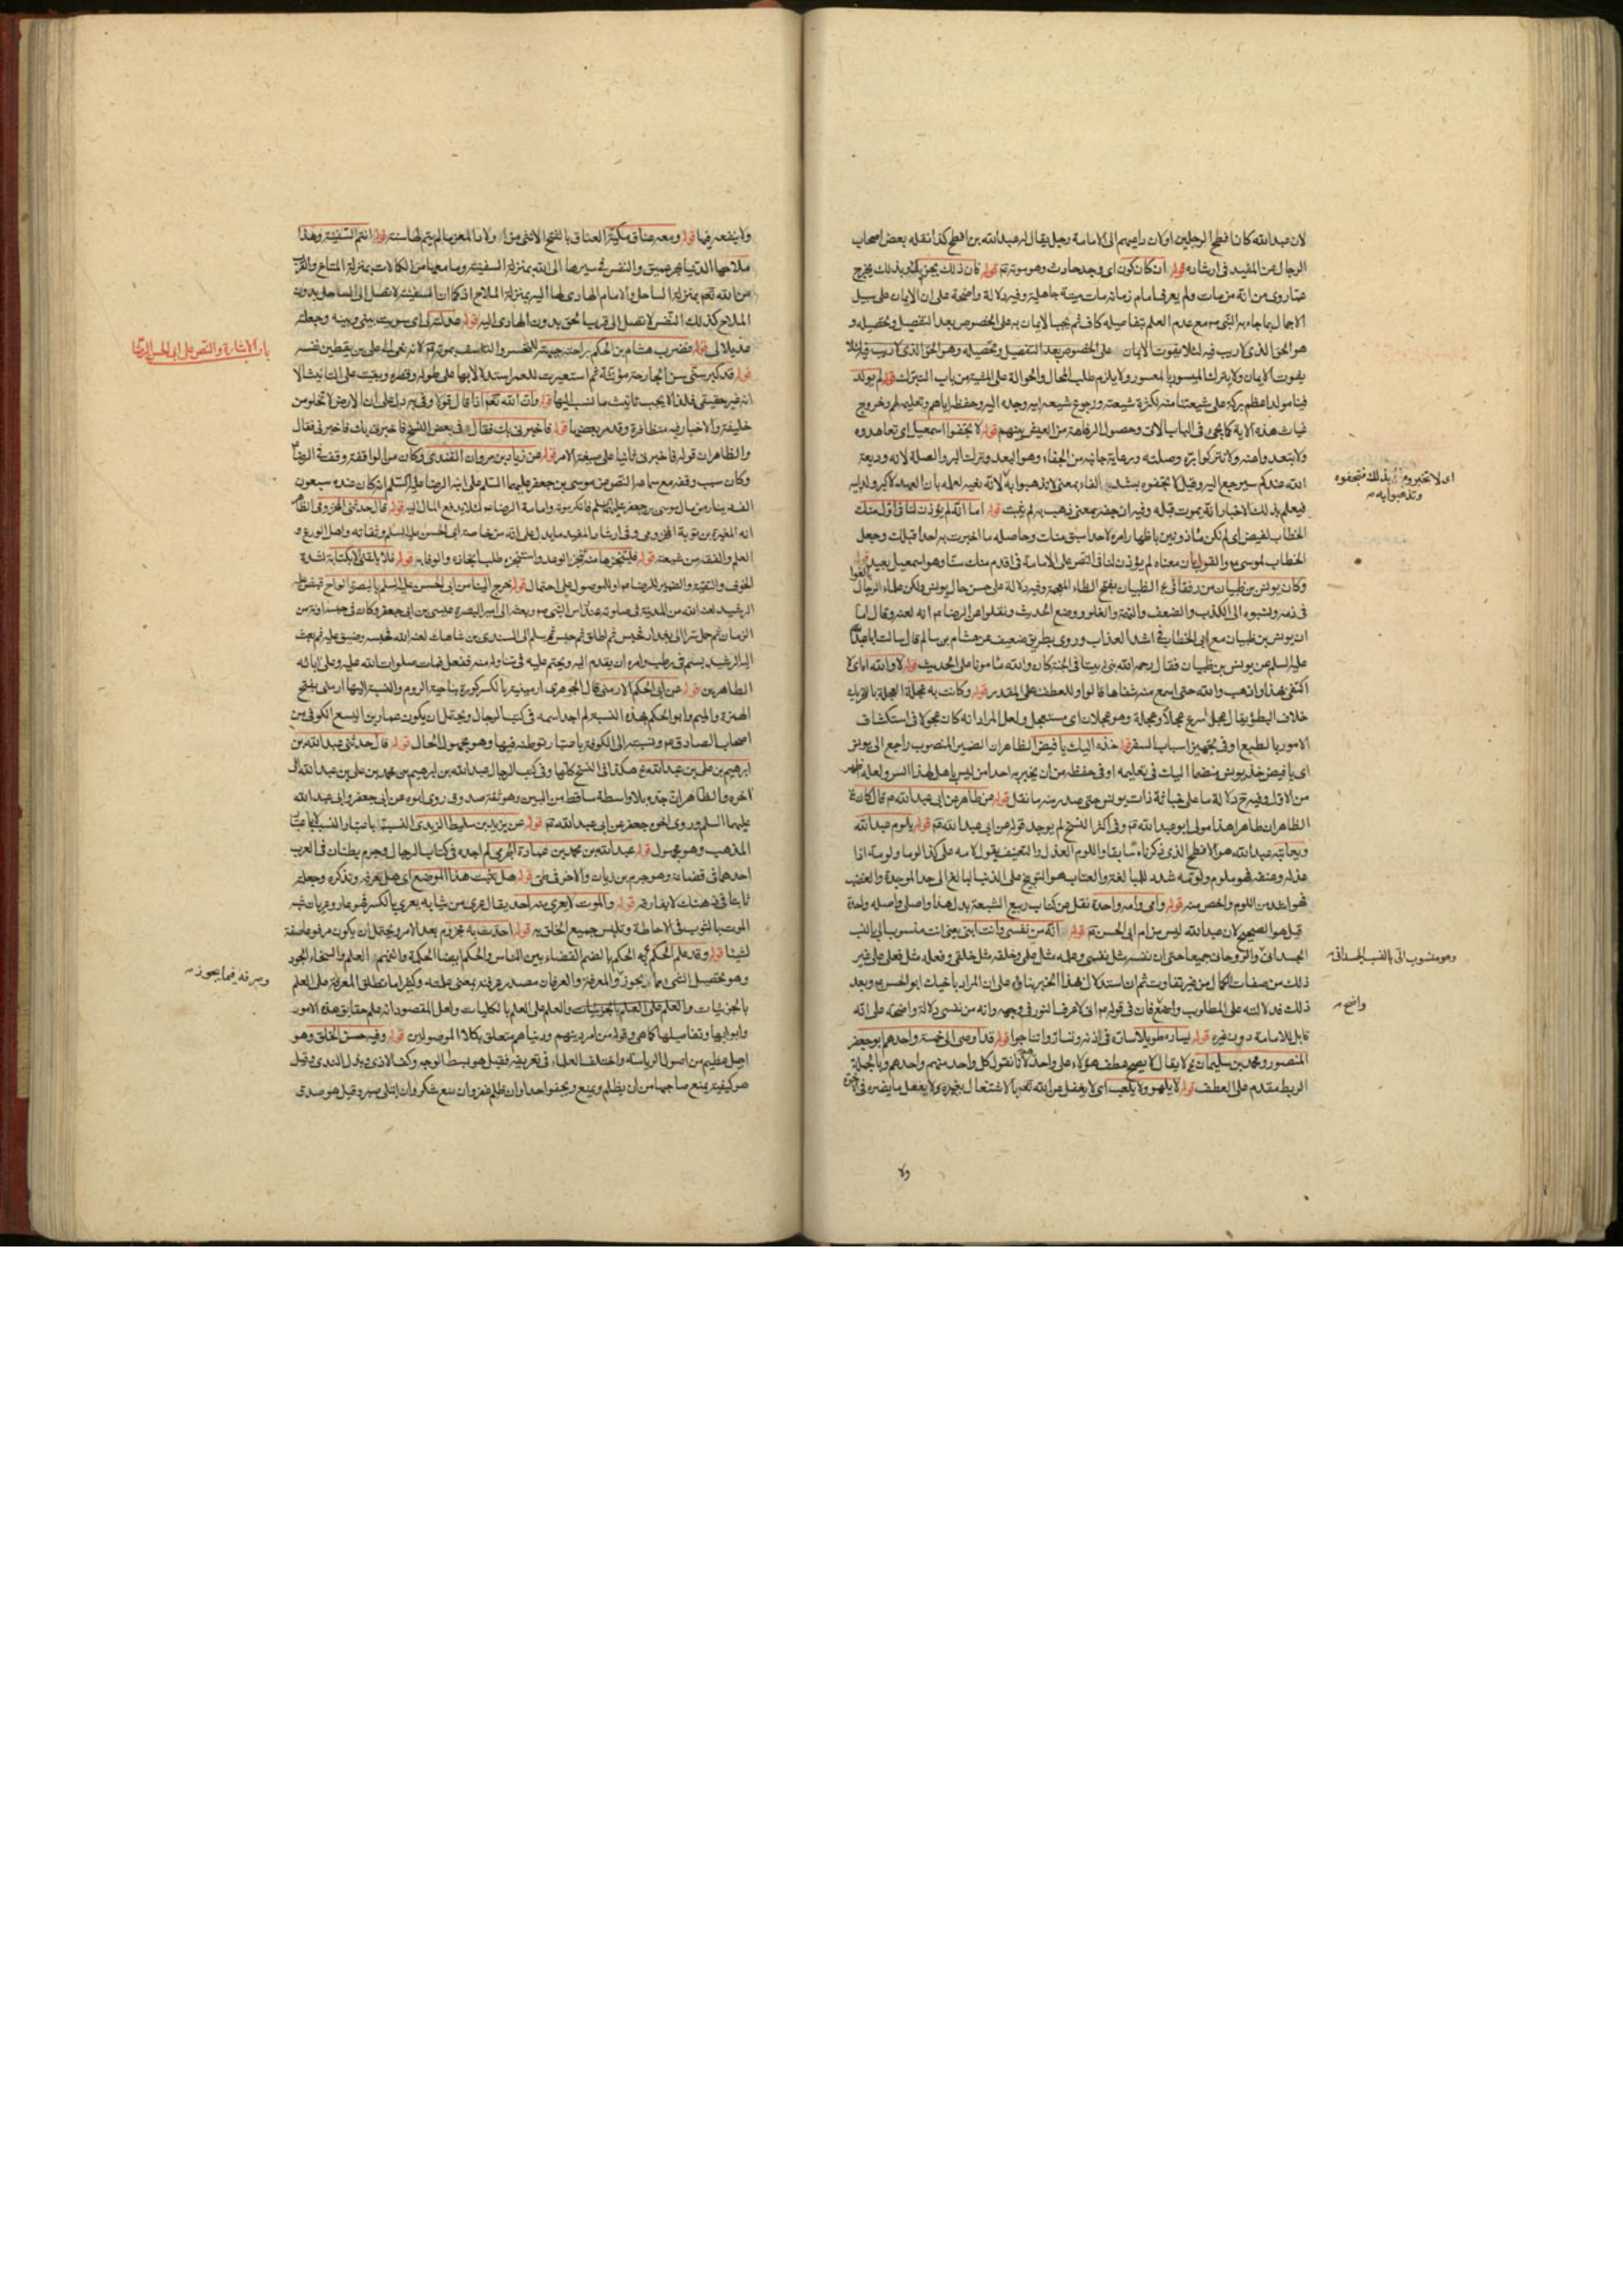 لان عبدالله كان افطح الرجلين او لان داعيهم الى الامامة رجل يقال له عبدالله بن افطح كذا نقله بعض اصحاب
الرجال عن المفيد في ارشاده قوله ان كان كون اى وجد حادث وهو موته قوله فان ذلك يجزيك وبذلك يخرج
عما روى من انه من مات ولم يعرف امام زمانه مات ميتة جاهلية وفيه دلالة واضحة على ان الايمان على سبيل
الاجمال بما جاء به النبى مع عدم العلم بتفاصيله كاف ثم يجب الايمان به على الخصوص بعد التفصيل وتحصيله و
هو الحق الذى لا ريب فيه لئلا يفوت الايمان على الخصوص بعد التفصيل وتحصيله وهو الحق الذى لا ريب فيه لئلا
يفوت الايمان ولا يترك الميسور بالمعسور ولا يلزم طلب المحال والحوالة على المشية من باب التبرك قوله لم يولد
فينا مولد اعظم بركة على شيعتنا منه لكثرة شيعته ورجوع شيعة ابيه وجده اليه وحفظه اياهم وتعليمه لهم وخروج
غياث هذه الامة كما يجئ في الباب الاتى وحصول الرفاهة من العيش بينهم قوله لا تجفوا اسمعيل اى تعاهدوه
ولا تبعدوا عنه ولا تتركوا بره وصلته ورعاية جانبه من الجفاء وهو البعد وترك البر والصلة لانه وديعة
الله عندكم سيرجع اليه وقيل لا تجفوه بشد الفاء بمعنى لا تذهبوا به لانه نفيه لعله بان العهد لاكبر ولد ابيه
اى لا تخبروه بذلك فتجفوه
وتذهبوا به
فيعلم بذلك الاخبار انه يموت قبله وفيه ان جفه بمعنى ذهب به لم يثبت قوله اما انه لم يؤذن لنا في اول منك
الخطاب لفيض اى لم نكن ماذونين باظهار امره لاحد سبق منك وحاصله ما اخبرت به احدا قبلك وجعل
الخطاب لموسى والقول بان معناه لم يؤذن لنا في النص على الامامة في اقدم منك سنا وهو اسمعيل بعيد قوله
وكان يونس بن ظبيان من رفقائى الظبيان بفتح الظاء المعجمة وفيه دلالة على حسن حال يونس ولكن علماء الرجال بالغوا
في ذمه ونسبوه الى الكذب والضعف والتهمة والغلو ووضع الحديث ونقلوا عن الرضا انه لعنه وقال اما
ان يونس بن ظبيان مع ابى الخطاب في اشد العذاب وروى بطريق ضعيف عن هشام بن سالم قال سالت ابا عبدالله
عليه السلم عن يونس بن ظبيان فقال رحمه الله بنى له بيتا في الجنة كان والله مامونا على الحديث قوله لا والله اى لا
اكتفى بهذا واذهب والله حتى اسمع منه شفاها قالوا وللعطف على المقدر قوله وكانت به عجلة العجلة بالتحريك
خلاف البطؤ يقال عجل اسرع عجلا وعجلة وهو عجلان اى مستعجل ولعل المراد انه كان عجولا في استكشاف
الامور بالطبع او في تجهيز اسباب السفر قوله خذه اليك يا فيض الظاهر ان الضمير المنصوب راجع الى يونس
اى يا فيض خذ يونس منضما اليك في تعليمه او في حفظه من ان يخبر به احدا من ليس باهل لهذا السر ولعله اظهر
من الاول وفيه ح دلالة ما على خباثة ذات يونس حتى صدر منه ما نقل قوله عن طاهر عن ابى عبدالله قال كان
الظاهر ان طاهرا هذا مولى ابو عبدالله وفى اكثر النسخ لم يوجد قوله عن ابى عبدالله قوله يلوم عبدالله
ويعاتبه عبدالله هو الافطح الذى ذكرناه سابقا واللوم العذل والتعنيف يقول لامه على كذا لوما ولومة اذا
عذله وعنفه فهو ملوم ولومه شدد للمبالغة والعتاب هو التوبيخ على الذنب البالغ الى حد الموجدة والغضب
فهو اشد من اللوم واخص منه قوله وامى وامه واحدة نقل عن كتاب ربيع الشيعة بدل هذا واصلى واصله واحد
قيل هو الصحيح لان عبدالله ليس من ام ابى الحسن قوله انه من نفسى وانت ابنى يعنى انت منسوب الى بالنسب
الجسدانى والروحانى جميعا حتى ان نفسه مثل نفسى وعلمه مثل علمى وخلقه مثل خلقى وفعله مثل فعلى على غير
وهو منسوب الى بالنسب الجسدانى
ذلك من صفات الكمال من غير تفاوت ثم ان استدلال هذا الخبر بناؤه على ان المراد باخيك ابو الحسن وبعد
ذلك فدلالته على المطلوب واضح فان في قوله انى لاعرف النور في وجهه وانه من نفسى دلالة واضحة على انه
واضح
قابل للامامة دون غيره قوله يساره طويلا ساره في اذنه وتساروا تناجوا قوله قد اوصى الى خمسة واحدهم ابو جعفر
المنصور ومحمد بن سليمان لا يقال لا يصح عطف هؤلاء على واحد لانا نقول كل واحد منهم واحدهم وبالجملة
الربط مقدم على العطف قوله لا يلهو ولا يلعب اى لا يغفل عن الله تعالى بالاشتغال بغيره ولا يفعل ما يضره في الاخرة
ولا
ولا ينفعه فيها قوله ومعه عناق مكية العناق بالفتح الانثى من اولاد المعز ما لم يتم لها سنة قوله انتم السفينة وهذا
ملاحها الدنيا بحر عميق والنفس في سيرها الى الله بمنزلة السفينة وما معها من الكمالات بمنزلة المتاع والقرب
من الله تعالى بمنزلة الساحل والامام الهادى لها اليه بمنزلة الملاح اذ كما ان السفينة لا تصل الى الساحل بدون
الملاح كذلك النفس لا تصل الى قرب الحق بدون الهادى اليه قوله
باب الاشارة والنص على ابى الحسن الرضا
قوله فضرب هشام بن الحكم براحته جبهته للتحسر والتاسف بموته لانه نعى اليه على بن يقطين نفسه
قوله قد كبر سنى سن الجارحة مؤنثة ثم استعيرت للعمر استدلالا بها على طوله وقصره وبقيت على التانيث الا
انه غير حقيقى فلذا لا يجب تانيث ما نسب اليها قوله وان الله تعالى اذا قال قولا وفى به دل على ان الارض لا تخلو من
خليفة والاخبار فيه متظافرة وقد مر بعضها قوله فاخبرنى بك فقال في بعض النسخ فاخبرنى بك فاخبرنى فقال
والظاهر ان قوله فاخبرنى ثانيا على صيغة الامر قوله عن زياد بن مروان القندى وكان من الواقفة وقف في الرضا
وكان سبب وقفه مع سماعه النص من موسى بن جعفر عليهما السلم على ابنه الرضا عليه السلم انه كان عنده سبعون
الف دينار من مال موسى بن جعفر عليهما السلم فانكر موته وامامة الرضا لئلا يدفع المال اليه قوله قال حدثنى المخزومى الظاهر
انه المغيرة بن توبة المخزومى وفى ارشاد المفيد ما يدل على انه من خاصة ابى الحسن عليه السلم وثقاته واهل الورع و
العلم والفقه من شيعته قوله فليتنجزها منه تنجز الوعد واستنجزه طلب انجازه والوفاء به قوله فلا يلقنى الا بكتابه لشدة
الخوف والتقية والضمير للرضا او للموصول على احتمال قوله خرج الينا من ابى الحسن عليه السلم بالبصرة الواح قبض عليه
الرشيد لعنه الله من المدينة في صلوته عند راس النبى وبعثه الى امير البصرة عيسى بن ابى جعفر وكان في حبسه مدة من
الزمان ثم حمل سرا الى بغداد فحبس ثم اطلق ثم حبس ثم سلم الى السندى بن شاهك لعنه الله فحبسه وضيق عليه ثم بعث
اليه الرشيد بسم في رطب وامره ان يقدم اليه ويحتم عليه في تناوله منه ففعل فمات صلوات الله عليه وعلى ابائه
الطاهرين قوله عن ابى الحكم الارمنى قال الجوهرى ارمينية بالكسر كورة بناحية الروم والنسبة اليها ارمنى بفتح
الهمزة والميم وابو الحكم بهذه النسبة لم اجد اسمه في كتب الرجال ويحتمل ان يكون عمار بن اليسع الكوفى من
اصحاب الصادق ونسبته الى الكوفة باعتبار توطنه فيها وهو مجهول الحال قوله قال حدثنى عبدالله بن
ابرهيم بن على بن عبدالله هكذا في النسخ كلها وفى كتب الرجال عبدالله بن ابرهيم بن محمد بن على بن عبدالله الى
اخره والظاهر ان جده بلا واسطة ساقط من البين وهو ثقة صدوق روى ابوه عن ابى جعفر وابى عبدالله
عليهما السلم وروى اخوه جعفر عن ابى عبدالله قوله عن يزيد بن سليط الزيدى النسبة باعتبار النسب لا باعتبار
المذهب وهو مجهول قوله عبدالله بن محمد بن عمارة الجرمى لم اجده في كتاب الرجال وجرم بطنان في العرب
احدهما في قضاعة وهو جرم بن زبان والاخر في طى قوله هل تثبت هذا الموضع اى هل تعرفه وتذكره وجعلته
ثابتا في ذهنك لا يفارقه قوله والموت لا يعرى منه احد يقال عرى من ثيابه يعرى بالكسر فهو عار وعريان شبه
الموت بالثوب في الاحاطة وتلبس جميع الخلق به قوله احدث به مجزوم بعد الامر ويحتمل ان يكون مرفوعا صفة
لشيئا قوله وقد علم الحكم الحكم بالضم القضاء بين الناس والحكم ايضا الحكمة والفهم العلم والسخاء الجود
وهو تحصيل الشى مما يجوز والمعرفة والعرفان مصدر عرفته بمعنى علمته وكثيرا ما تطلق المعرفة على العلم
وصرفه فيما يجوز
بالجزئيات والعلم على العلم بالكليات ولعل المقصود انه علم حقايق هذه الامور
وابوابها وتفاصيلها كما هى وقوله من امر دينهم ودنياهم متعلق بكلا الموصولين قوله وفيه حسن الخلق وهو
اصل عظيم من اصول الرياسة واختلف العلماء في تعريفه فقيل هو بسط الوجه وكف الاذى وبذل الندى وقيل
هو كيفية يمنع صاحبها من ان يظلم ويمنع ويجفو احدا وان ظلم غفر وان منع شكر وان ابتلى صبر وقيل هو صدق